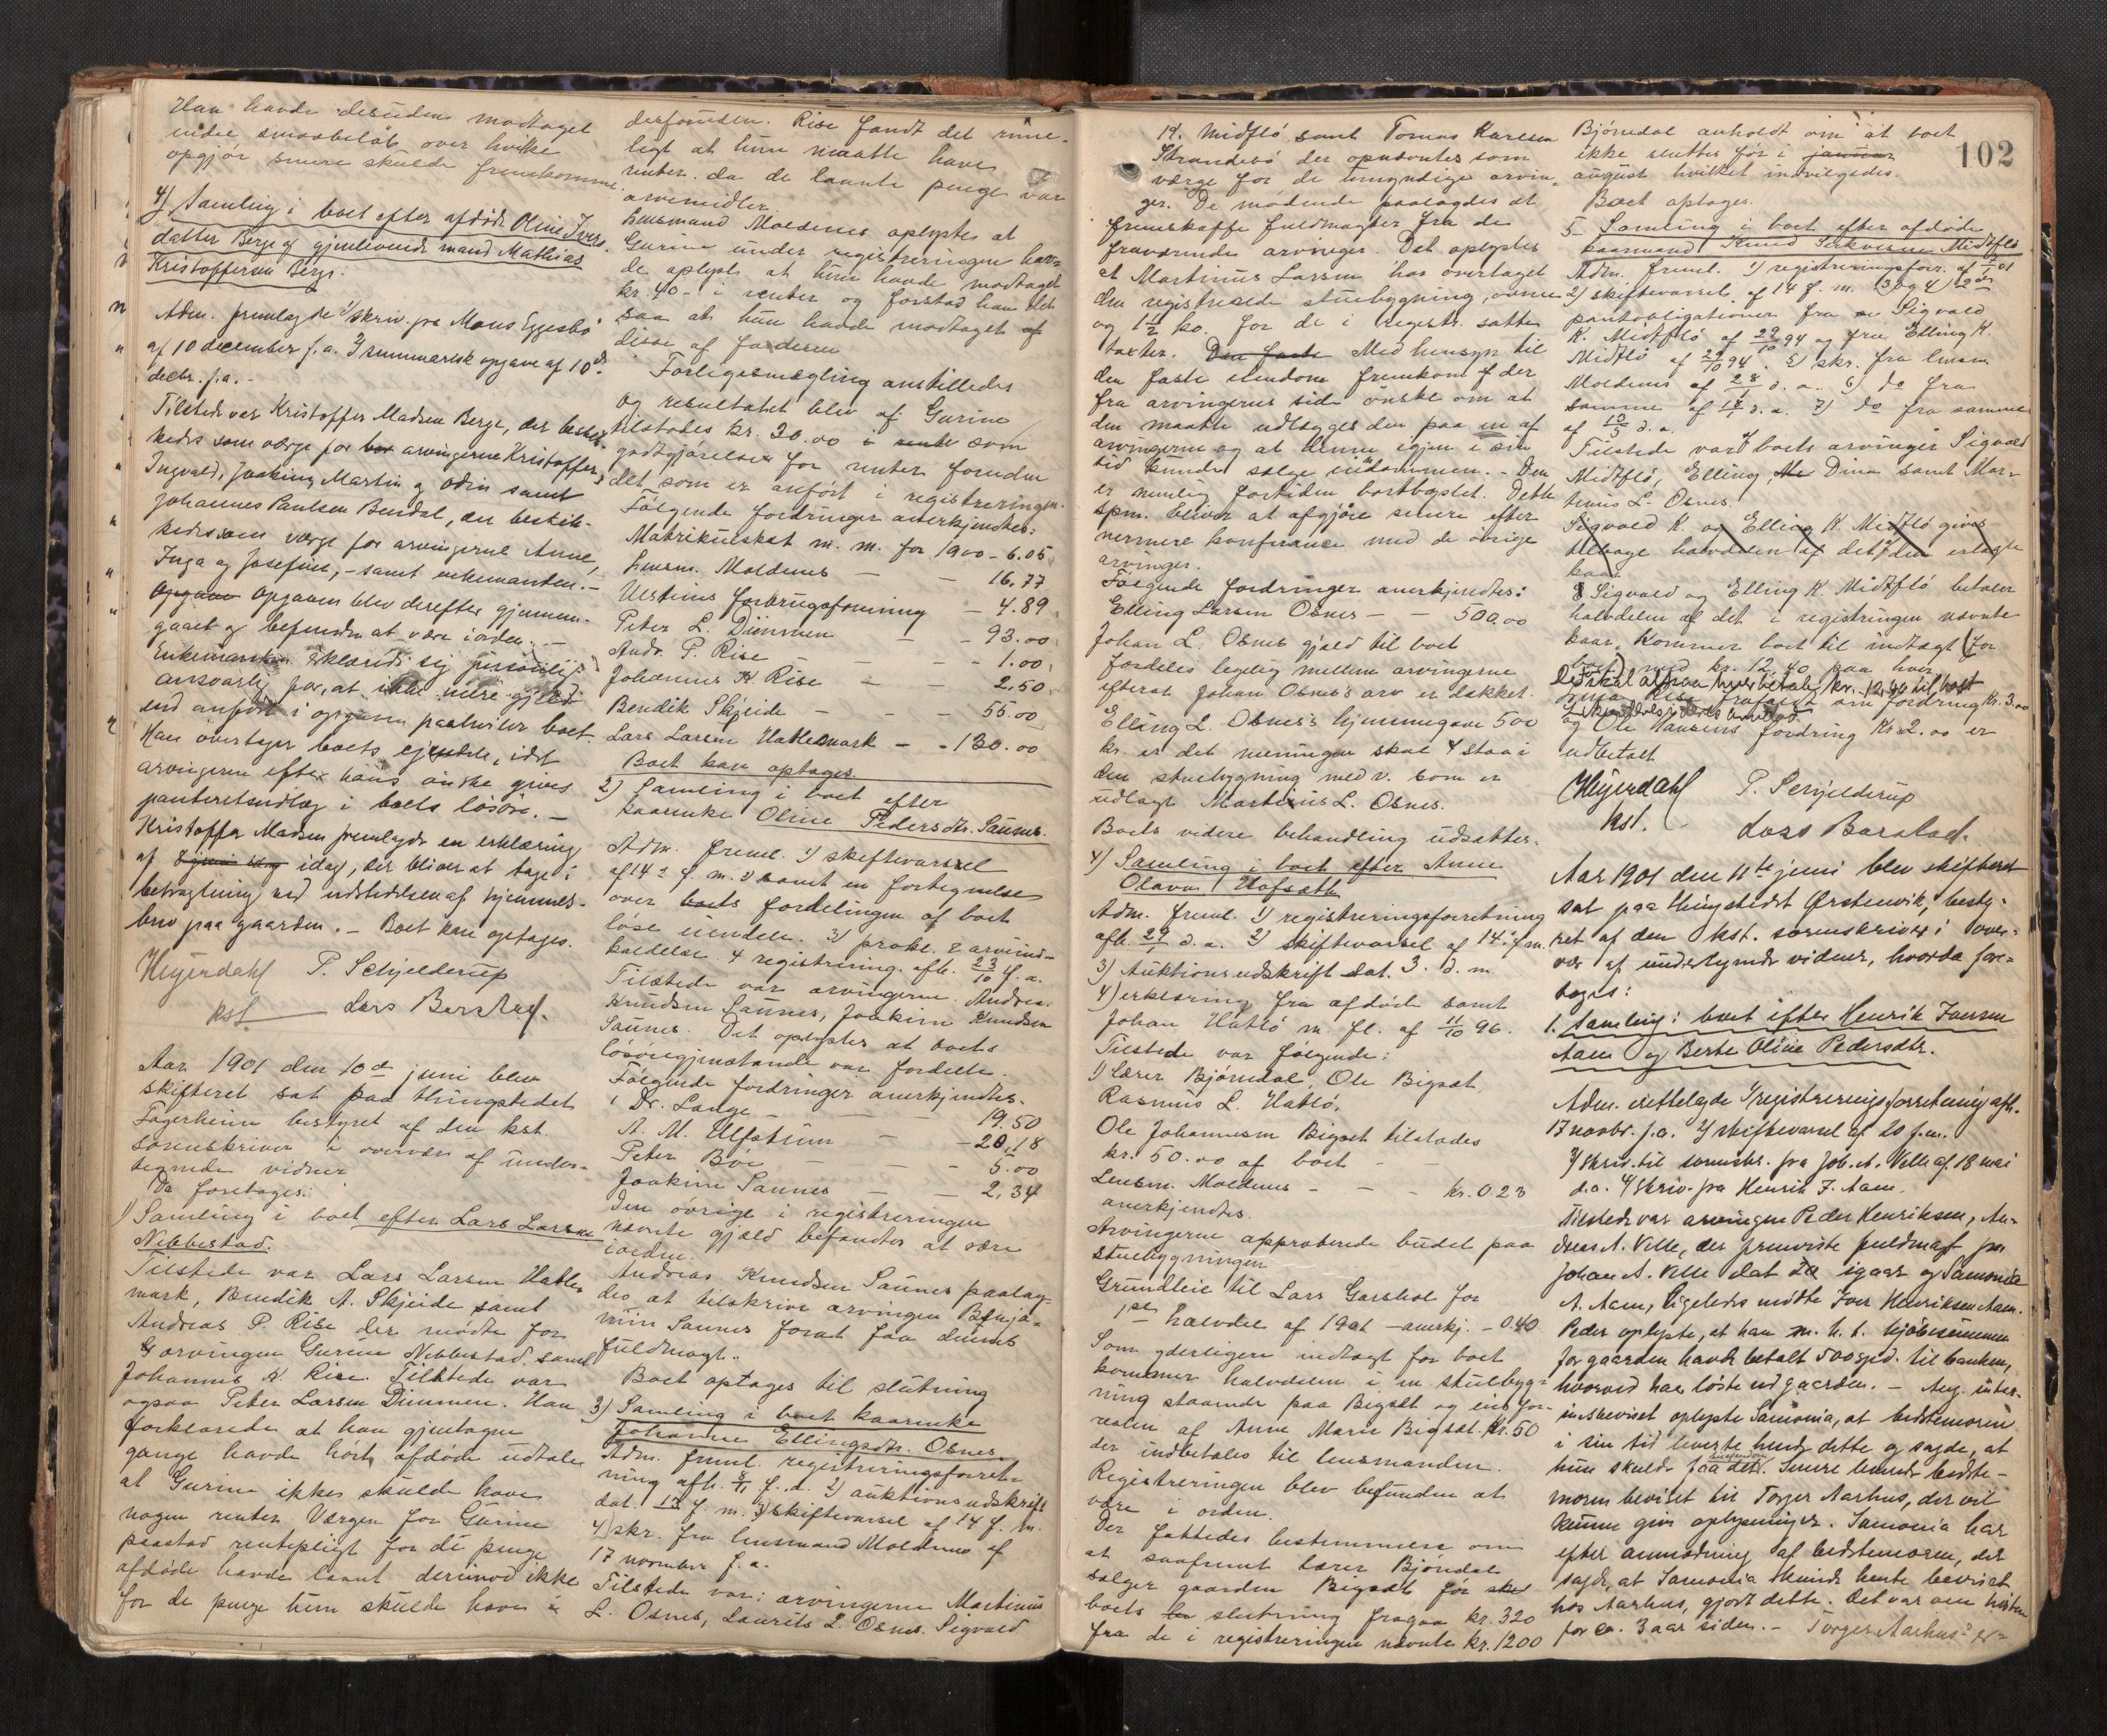 Han havde desuden modtaget
endel smaabeløb over hvilke
opgjør senere skulde fremkomme.
4) Samling i boet efter afdøde Oline Ivers-
datter Berge og gjenlevende mand Mathias
Kristoffersen Berge.
Adm. fremlagde 1) skriv. fra Mons Eggesbø
af 10 december f.a. 2) summarisk opgave af 10de
decbr. f.a. -
Tilstede var Kristoffer Madsen Berge, der beskik-
kedes som værge for arvingerne Kristoffer,
Ingvald, Joakim, Martin og Odin samt
Johannes Paulsen Berdal, der beskik-
kedes som værge for arvingerne Anne,
Inga og Josefine, - samt enkemanden. -
Opgaven Opgaven blev derefter gjennem-
gaaet og befunden at være i orden. -
Enkemanden erklærede sig personlig
ansvarlig for, at ikke mere gjæld
end anført i opgaven paahviler boet.
Han overtager boets eiendele, idet
arvingerne efter hans ønske gives
panteretsudlæg i boets løsøre. -
Kristoffer Madsen fremlagde en erklæring
af idag, der bliver at tage i
betragtning ved udstedelsen af hjemmels-
brev paa gaarden. - Boet kan optages.
Heyerdahl P. Schjelderup
kst. Lars Barstad.
Aar 1901 den 10de juni blev
skifteret sat paa thingstedet
Fagerheim bestyret af den kst.
sorenskriver i overvær af under-
tegnede vidner
Da foretoges:
1) Samling i boet efter Lars Larsen
Nebbestad.
Tilstede var Lars Larsen Hatle-
mark, Bendik A. Skjeide samt
Andreas P. Rise der mødte for
arvingen Gurine Nebbestad samt
Johannes K. Rise. Tilstede var
ogsaa Peter Larsen Dimmen. Han
forklarede at han gjentagne
gange havde hørt afdøde udtale
at Gurine ikke skulde have
nogen renter. Værgen for Gurine
paastod rentepligt for de penge
afdøde havde laant derimod ikke
for de penge hun skulde have i
derforuden. Rise fandt det rime-
ligt at hun maatte have
renter da de laante penge var
arvemidler.
Lensmand Moldenes oplyste at
Gurine under registreringen hav-
de oplyst at hun havde modtaget
kr. 40.- i renter og forstod han det
saa at hun havde modtaget af
disse af faderen
Forligsmægling anstilledes
og resultatet blev at Gurine
tilstodes kr. 30.00 i rente som
godtgjørelse for renter foruden
det som er anført i registreringen.
Følgende fordringer anerkjendtes:
Matrikulskat m. m. for 1900 - 6.05
Lensm. Moldenes - - 16,77
Ulstens forbrugsforening - 4.89
Peter L. Dimmen - - 93.00
Andr. P. Rise - - - 1.00
Johannes K. Rise - - 2,50
Bendik Skjeide - - - 55.00
Lars Larsen Hatlemark - - 130.00
Boet kan optages.
2) Samling i boet efter
kaarenke Oline Pedersdtr. Saunes.
Adm. freml. 1) skiftevarsel
af 14 f. m. 2) samt en fortegnelse
over boets fordelingen af boet
løse eiendele. 3) prokl. & arveind-
kaldelse. 4 registrering. afh. 23/10 f. a.
Tilstede var arvingerne. Andreas
Knudsen Saunes, Joakim Knudsen
Saunes. Det oplystes at boets
løsøregjenstande var fordelte.
Følgende fordringer anerkjendtes.
1 Dr. Lange - - - 19.50
A. M. Ulfstein - - 20,18
Peter Bøe - - - 5.00
Joakim Saunes - - 2,34
Den øvrige i registreringen
nævnte gjæld befandtes at være
iorden.
Andreas Knudsen Saunes paalag-
des at tilskrive arvingen Benja-
min Saunes forat faa dennes
fuldmagt..
Boet optages til slutning
3) Samling i boet kaarenke
Johanne Ellingsdtr. Osnes.
Adm. freml. registreringsforret-
ning afh. f. a. 2) auktionsudskrift
dat. f. m. 3) skiftevarsel af 14 f. m.
4) skr. fra lensmand Moldenes af
17 november f. a.
Tilstede var: arvingerne Martinus
L. Osnes, Laurits L. Osnes. Sigvald
102
K. Midtflø samt Tomas Karlsen
Strandebø der opnævntes som
værge for de umyndige arvin-
ger. De mødende paalagdes at
fremskaffe fuldmagter fra de
fraværende arvinger. Det oplystes
at Martinus Larsen har overtaget
den registrerede stuebygning, ovne
og 1 1/2 ko. for de i registr. satte
takster. Den faste Med hensyn til
den faste eiendom fremkom der
fra arvingernes side ønske om at
den maatte udlægges den paa en af
arvingerne og at denne igjen i sin
tid kunde sælge eiendommen. - Den
er nemlig fortiden bortbygslet. Dette
spm. bliver at afgjøre senere efter
nermere konferance med de øvrige
arvinger.
Følgende fordringer anerkjendtes:
Elling Larsen Osnes - - 500.00
Johan L. Osnes gjæld til boet
fordeles ligelig mellem arvingerne
efterat Johan Osnes's arv er dækket.
Elling L. Osnes's hjemmegave 500
kr. er det meningen skal staa i
den stuebygning med v. som er
udlagt Martinus L. Osnes.
Boets videre behandling udsættes.
4) Samling i boet efter Anne
Olava Hofsæth
Adm. freml. 1) registreringsforretning
afh. d. a. 2) skiftevarsel af 14. f. m.
3) Auktionsudskrift dat. 3. d. m.
4) erklæring fra afdøde samt
Johan Hatlø m. fl. af 11/10 96.
Tilstede var følgende:
1) Lærer Bjørndal, Ole Bigset,
Rasmus L. Hatlø.
Ole Johannesen Bigset tilstodes
kr. 50.00 af boet - -
Lensm. Moldenes - - - kr. 0.23
anerkjendtes.
Arvingerne approberede budet paa
stuebygningen
Grundleie til Lars Garshol for
1ste halvdel af 1901 - anerkj. - 0.40
Som yderligere indtægt for boet
kommer halvdelen i en stuebyg-
ning staaende paa Bigset og eies for-
resten af Anne Marie Bigset. Kr. 50
der indbetales til lensmanden.
Registreringen blev befunden at
være i orden.
Der fattedes bestemmelse om
at saafremt lærer Bjørndal
sælger gaarden Bigset før
boets slutning fragaar kr. 320
fra de i registreringen nævnte kr. 1200
Bjørndal anholdt om at boet
ikke sluttes før i januar
august hvilket indvilgedes.
Boet optages.
5. Samling i boet efter afdøde
kaarmand Knud Midtflø
Adm. freml. 1) registreringsforr. af
2) skiftevarsel af 14 f. m. 3 og 4) 2 de
pantobligationer fra Sigvald
K. Midtflø af 29/10 94 og fra Elling K.
Midtflø af 29/10 94. 5) skr. fra lensm
Moldenes af d. a. 6) do fra
samme af d. a. 7) do fra samme
af d. a.
Tilstede var boets arvinger Sigvald
Midtflø, Elling, Dina samt Mar-
tinus L. Osnes.
Sigvald K. og Elling K. Midtflø gives
tilbage halvdelen af det den erlagte
kaar.
Sigvald og Elling K. Midtflø betaler
halvdelen af det i registringen nævnte
kaar. Kommer boet til indtægt (for
boet) med kr. 12,40 paa hver
De skal altsaa hver betale kr. 12,40 til boet
fordring kr. 3.00
og Ole Hansens fordring Kr. 2.00 er
udbetalt
Heyerdahl P. Schjelderup
kst. Lars Barstad.
Aar 1901 den 11te juni blev skifteret
sat paa thingstedet Ørstenvik, besty-
ret af den kst. sorenskriver i over-
vær af undertegnede vidner, hvorda fore-
toges:
1. Samling i boet efter Henrik Iversen
Aam og Berte Oline Pedersdtr.
Adm. irettelagde 1) registreringsforretning afh.
17 novbr. f.a. 2) skiftevarsel af 20 f.m.
3) skriv. til sorenskr. fra Joh. A. Velle af 18 mai
d.a. 4) skriv. fra Henrik I. Aam.
Tilstede var arvingen Peder Henriksen, An-
dreas A. Velle, der fremviste fuldmagt fra
Johan A. Velle dat igaar og Samonia
A. Aam, ligeledes mødte Iver Henriksen Aam.
Peder oplyste, at han m. h. t. kjøbesummen
for gaarden havde betalt 500 spd. til banken,
hvorved han løste ud gaarden. - Ang. inter-
imsbeviset oplyste Samonia, at bedstemoren
i sin tid leverte hende dette og sagde, at
hun skulde faa det. Senere leverede bedste-
moren beviset til Torger Aarhus, der vil
kunne give oplysninger. Samonia har
efter anmodning af bedstemoren, der
sagde, at Samonia skulde hente beviset
hos Aarhus, gjort dette. Det var om høsten
for ca. 3 aar siden. - Torger Aarhus's